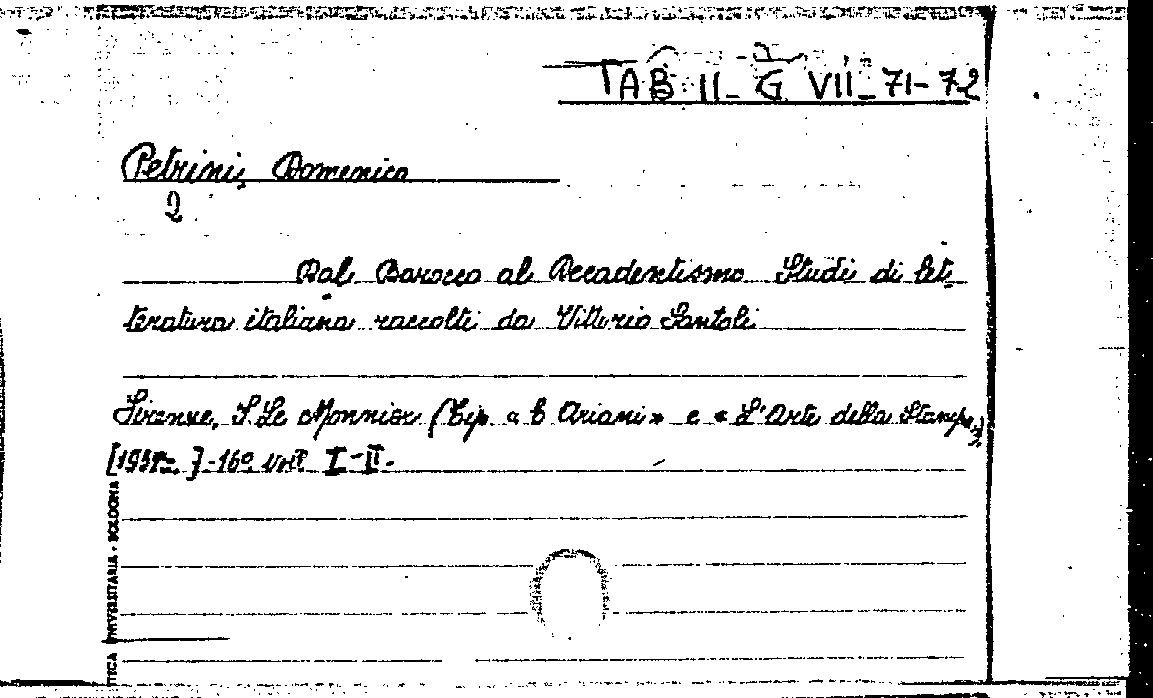 TAB II- G VII- 71- 72
Petrini, Domenico
2
Dal Barocco al Decadentismo Studi di let-
teratura italiana raccolti da Vittorio Santoli
Firenze, F. Le Monnier (Tip. « E Ariani » e « L'Arte della Stampa »)
]-16° voll I-II-
UNIVERSITARIA - BOLOGNA